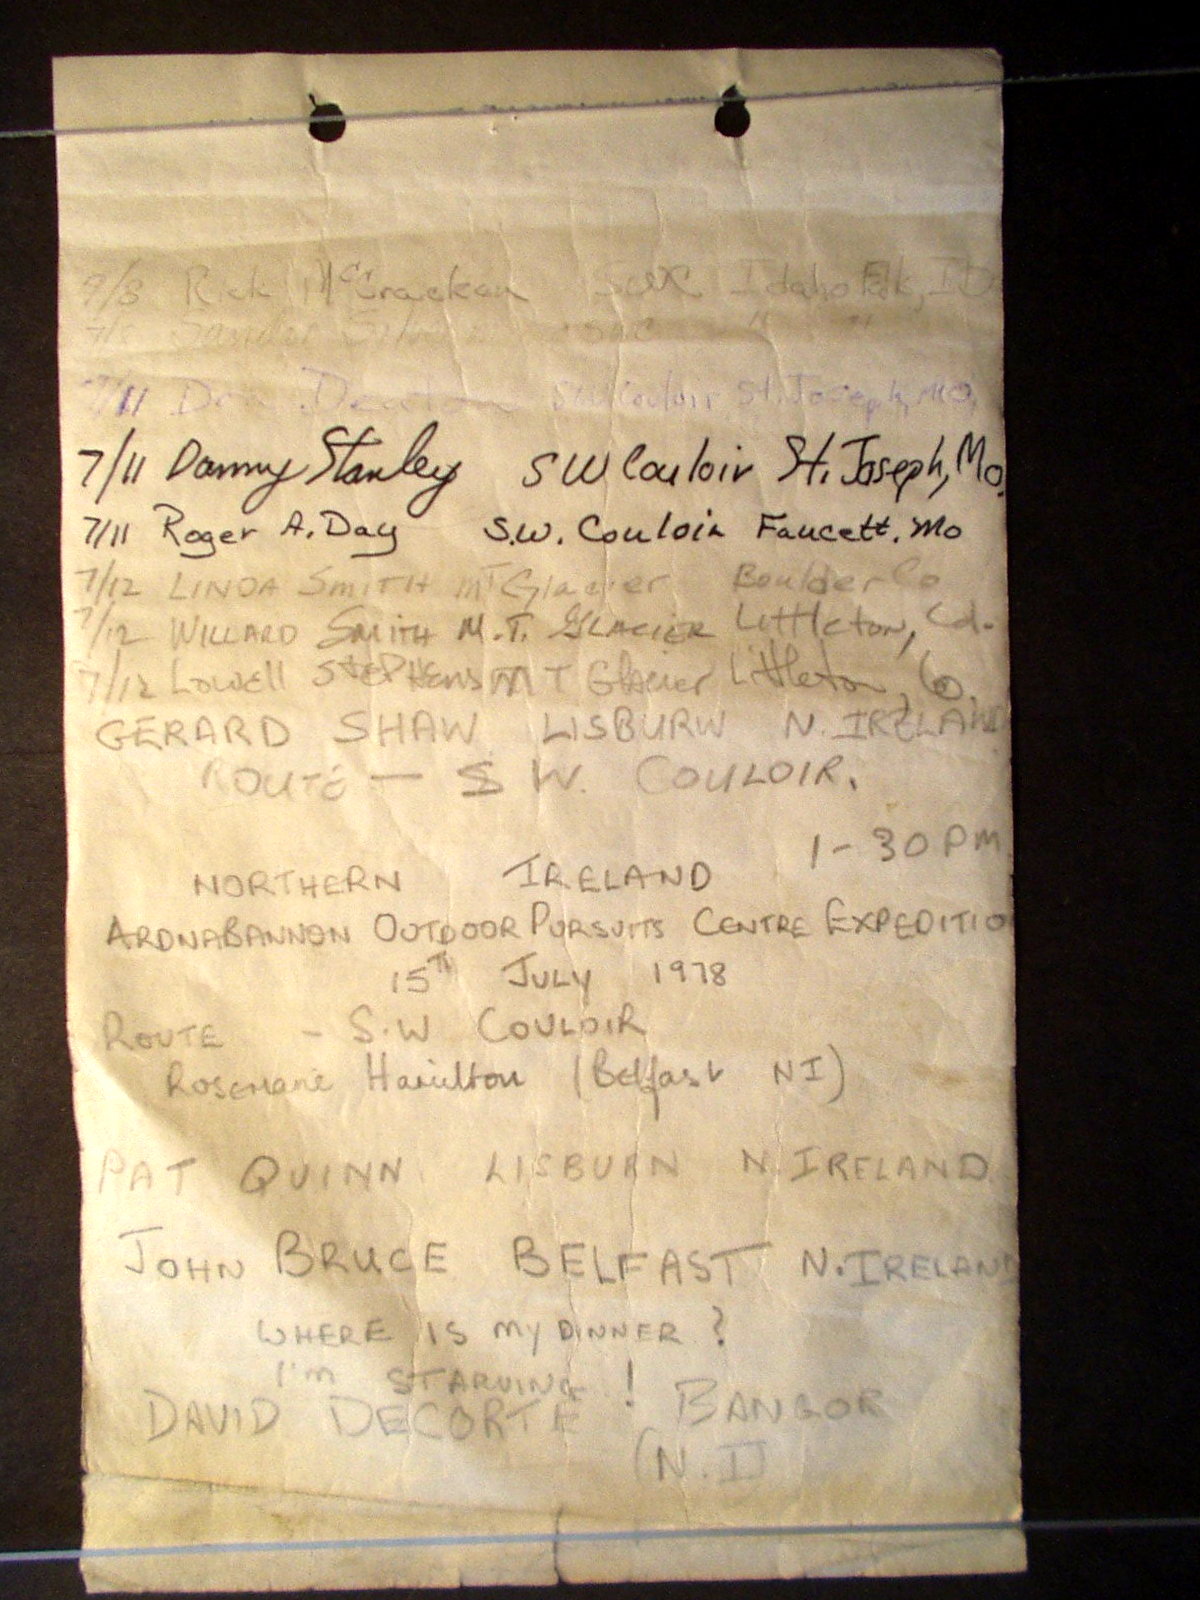 Rick McCracken Idaho Falls, ID
" "
7/11 SW Couloir St. Joseph, MO,
7/11 Danny Stanley SW Couloir St. Joseph, Mo,
7/11 Roger A. Day S.W. Couloir Faucett. Mo
7/12 LINDA SMITH MT Glacier Boulder Co
7/12 WILLARD SMITH M.T. GLACIER Littleton, Col.
7/12 Lowell Stephens MT Glacier Littleton, Co.
GERARD SHAW LISBURN N. IRELAND
ROUTE — S W. COULOIR.
1-30 PM
NORTHERN IRELAND
ARDNABANNON OUTDOOR PURSUITS CENTRE EXPEDITIO
15TH JULY 1978
ROUTE - S.W COULOIR
Rosemarie Hamilton (Belfast NI)
PAT QUINN LISBURN N. IRELAND
JOHN BRUCE BELFAST N. IRELAND
WHERE IS MY DINNER ?
I'm STARVING !
DAVID DECORTE BANGOR
(N.I)